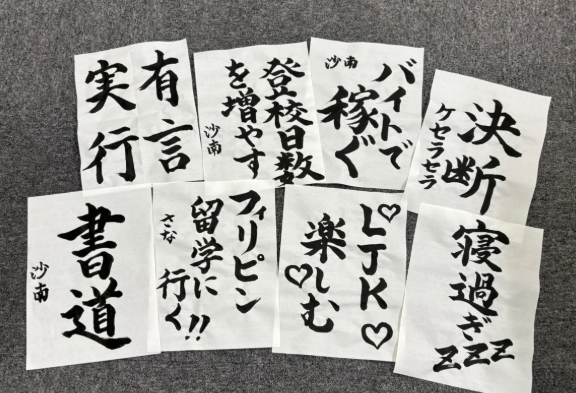 有言
実行
登校日数
を増やす
沙南
バイトで
稼ぐ
沙南
決断
ケセラセラ
書道
沙南
フィリピン
留学に
行く!!
さな
LJK♡
楽しむ
♡
寝過ぎ
ZZZ